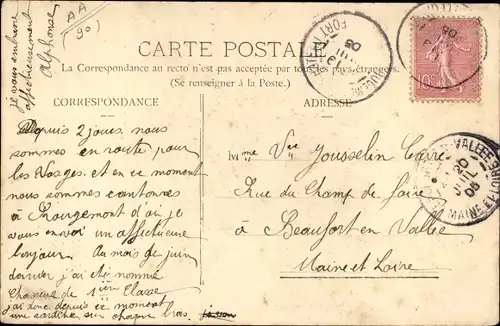 AA
(90)
je vous embrasse
affectueusement
Alphonse
CARTE POSTALE
La Correspondance au recto n'est pas acceptée par tous les pays étrangers.
(Se renseigner à la Poste.)
CORRESPONDANCE
ADRESSE
Depuis 2 jours, nous
sommes en route pour
les Vosges. Et en ce moment
nous sommes cantonnés
à Rougemont d'où je
vous envoi un affectueux
bonjour. Au mois de juin
dernier j'ai été nommé
Chasseur de 1ière Classe
j'ai donc depuis ce moment
une sardine sur chaque bras.
Mme Vve Jousselin Carré
Rue du Champ de foire
Beaufort en Vallée
Maine et Loire
10
VALLÉE
20
JUIL
05
MAINE ET LOIRE